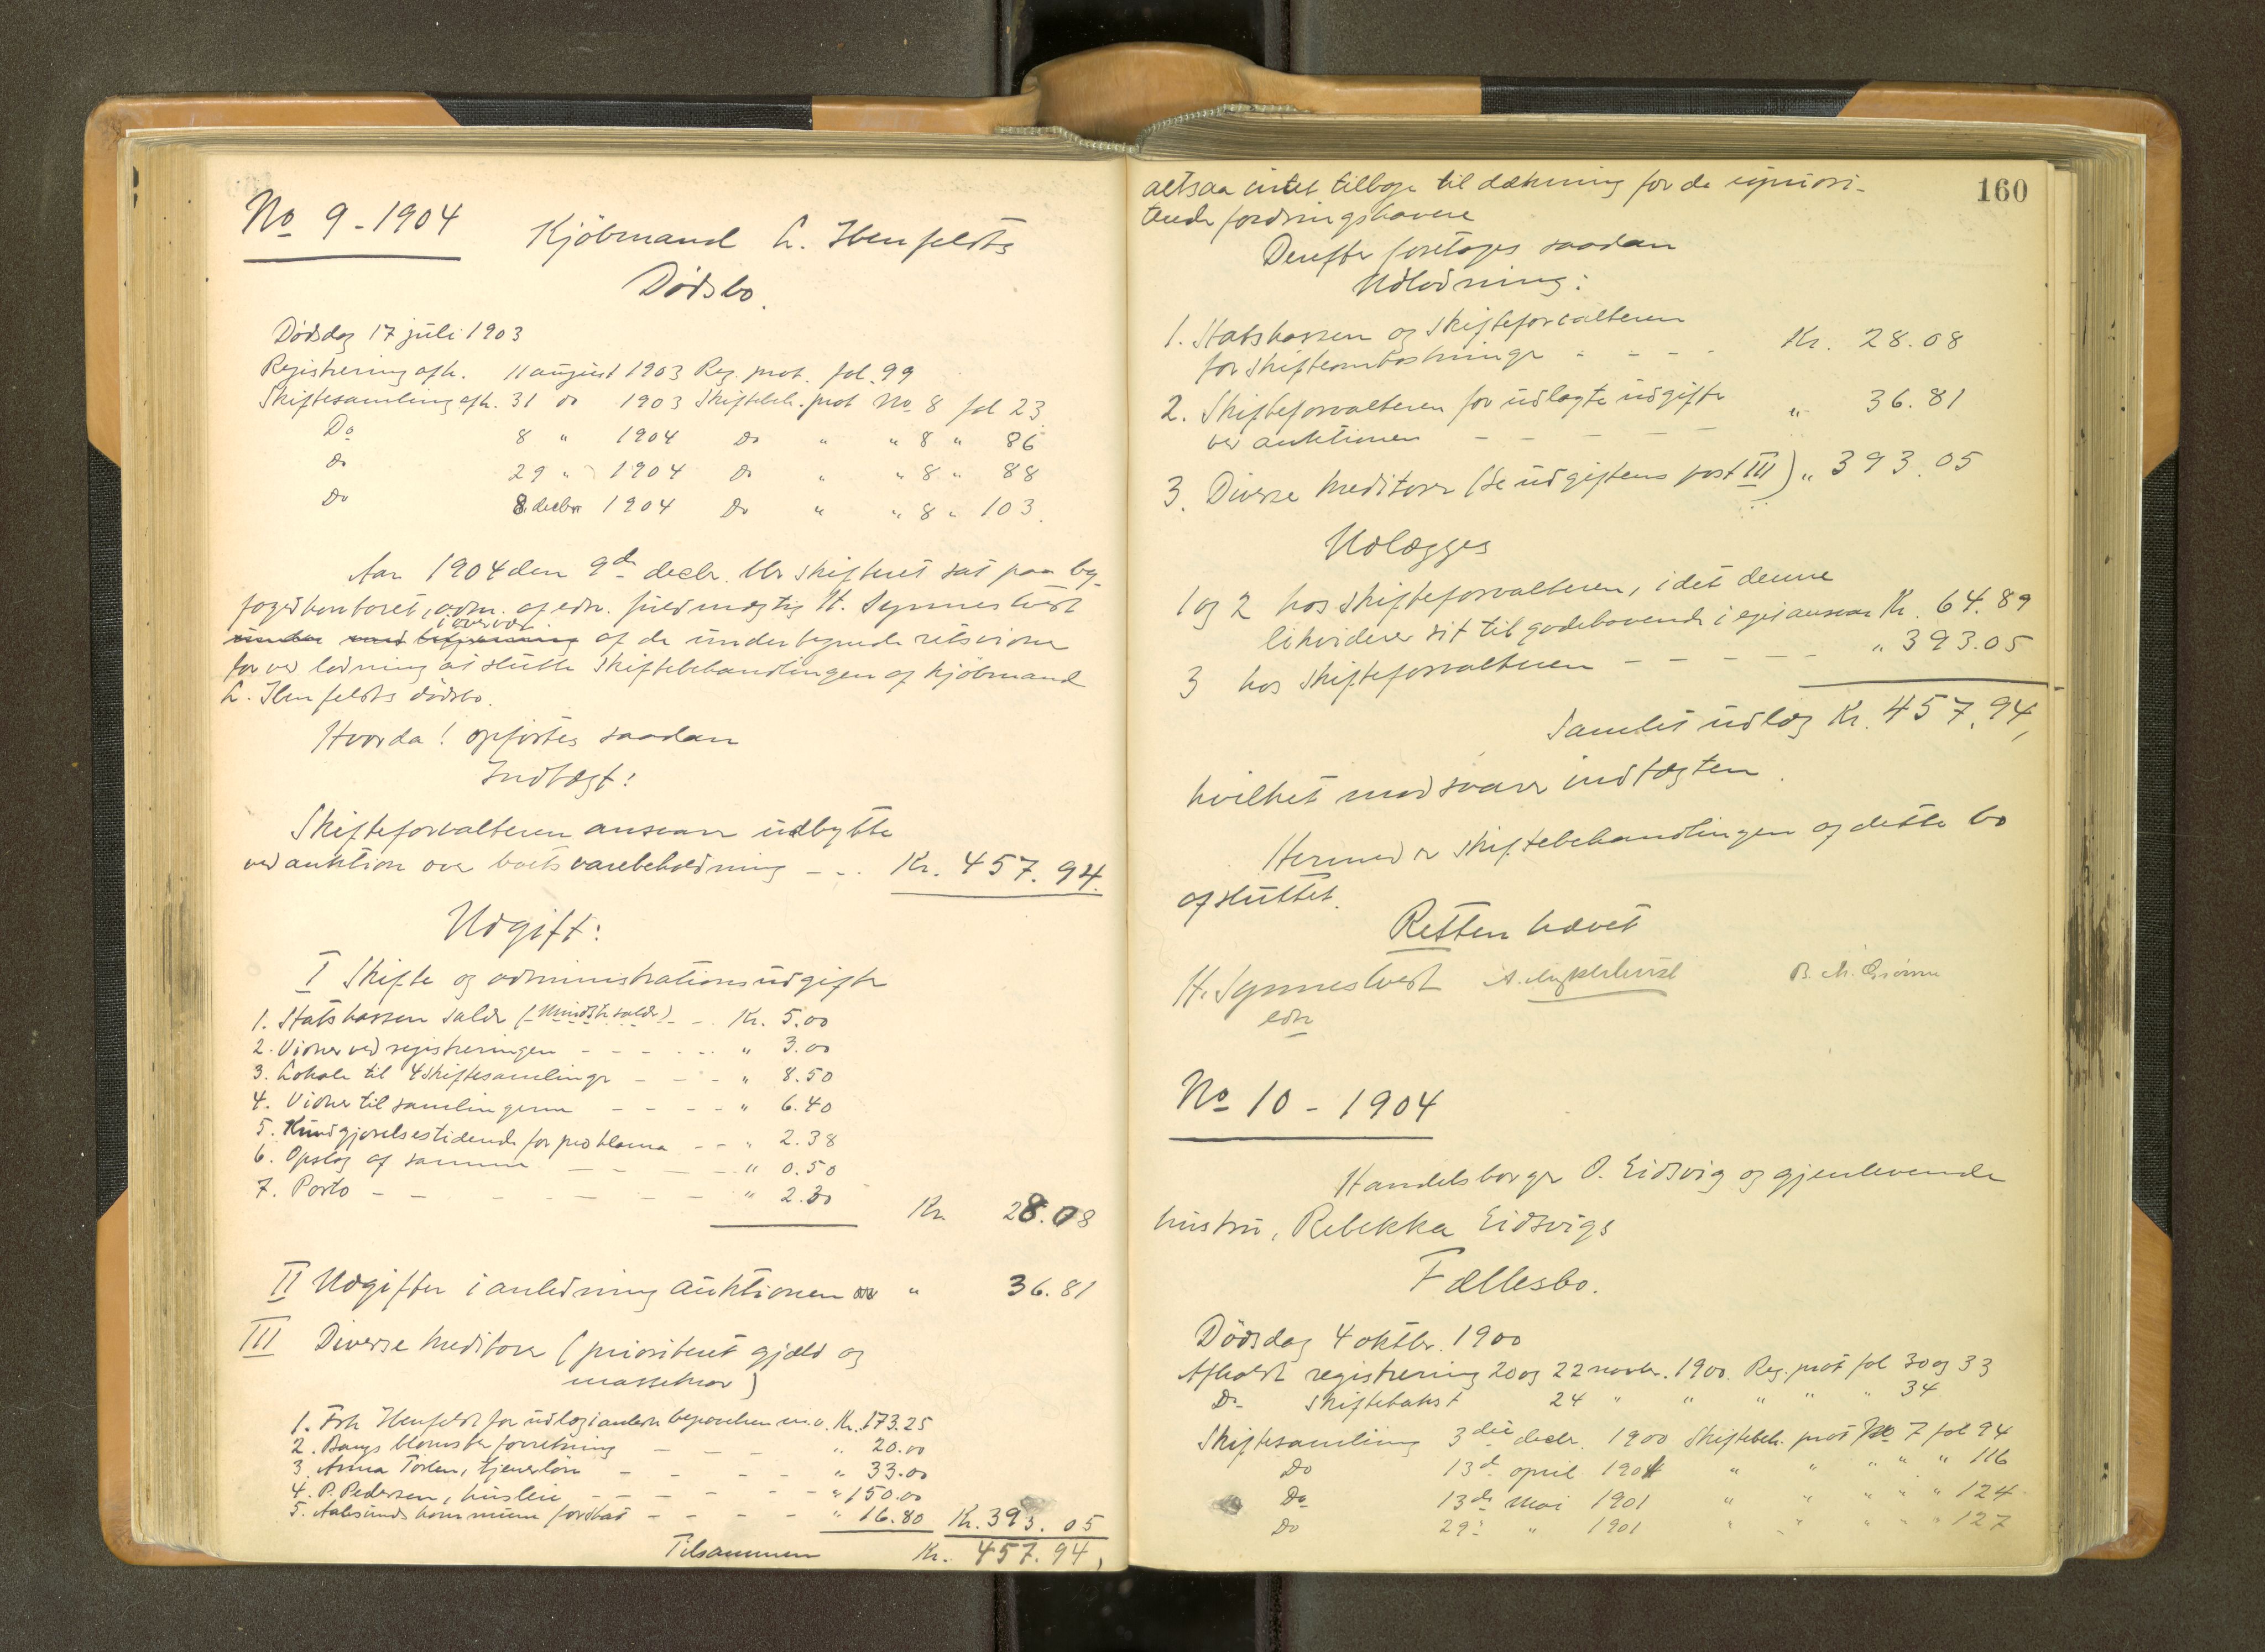 No 9-1904
Kjöbmand L. Ibenfeldts
Dödsbo.
Dödsdag 17 juli 1903
Registrering afh. 11 august 1903 Reg. prot. fol. 99
Skiftesamling afh. 31 do 1903 Skiftebeh. prot No 8 fol 23
Do 8 " 1904 Do " " 8 " 86
do 29 " 1904 Do " " 8 " 88
Do 8 decbr 1904 Do " " 8 " 103.
Aar 1904 den 9de decbr. blev skifteret sat paa by-
fogedkontoret, adm. af edsv. fuldmægtig H. Synnestvedt
i overvær
af de undertegnede retsvidner
for ved lodning at slutte skiftebehandlingen af kjöbmand
L. Ibenfeldts dödsbo.
Hvorda! opförtes saadan
Indtægt:
Skifteforvalteren ansvarer udbytte
ved auktion over boets varebeholdning - - . Kr. 457.94.
Udgift:
I Skifte og administrationsudgifter
1. Statskassen salær (Mindste salær) - - Kr. 5.00
2. Vidner ved registreringen - - - - - " 3.00
3. Lokale til 4 skiftesamlinger - - - " 8.50
4. Vidner til samlingerne - - - - " 6.40
5. Kundgjørelsestidende for proklama - - " 2.38
6. Opslag af samme - - - - - " 0.50
7. Porto - - - - - - - " 2.30
Kr. 28.08
II Udgifter i anledning auktionen " 36.81
III Diverse kreditorer (prioriteret gjæld og
massekrav)
1. Frk Ibenfeldt for udlæg i anledn begravelsen m.v. Kr. 173.25
2. Bangs blomsterforretning - - - " 20.00
3. Anna Torlen, tjenerløn - - - - " 33.00
4. P. Pedersen, husleie - - - - - - " 150.00
5. Aalesunds kommune forskat - - - - " 16.80 Kr. 393.05
Tilsammen Kr. 457.94,
160
altsaa intet tilbage til dækning for de upriori-
terede fordringshavere
Derefter foretages saadan
Udlodning:
1. Statskassen og skifteforvalteren
for skifteomkostninger - - - - Kr. 28.08
2. Skifteforvalteren for udlagte udgifter
ved auktionen - - - - - - " 36.81
3. Diverse kreditorer (se udgiftens post III) " 393.05
Udlægges
1 og 2 hos skifteforvalteren, idet denne
likviderer sit tilgodehavende i eget ansvar Kr. 64.89
3 hos skifteforvalteren - - - - - " 393.05
Samlet udlæg Kr. 457.94,
hvilket modsvarer indtægten.
Hermed er skiftebehandlingen af dette bo
afsluttet.
Retten hævet
H. Synnestvedt
edsv
No 10 - 1904
Handelsborger O. Eidsvig og gjenlevende
hustru, Rebekka Eidsvigs
Fællesbo.
Dödsdag 4 oktbr. 1900
Afholdt registrering 20 og 22 novbr. 1900. Reg. prot fol 30 og 33
Do Skiftetakst 24 " " " " " 34
Skiftesamling 3die decbr. 1900 Skiftebeh. prot No 7 fol 94
Do 13de april 1901 " " " " " 116
Do 13de mai 1901 " " " " " 124
Do 29: " 1901 " " " " " 127